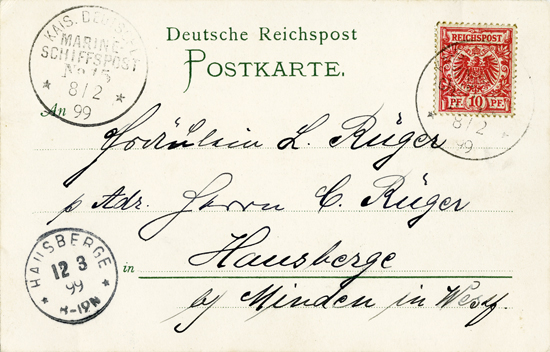 Deutsche Reichspost
POSTKARTE.
KAIS. DEUTSCHE
MARINE-
SCHIFFSPOST
No 15
8/2
99
REICHSPOST
PF. 10 PF.
8/2
99
An
Fräulein L. Rüger
p Adr. Herrn C. Rüger
in Hausberge
b/ Minden in Westf.
HAUSBERGE
12 3
99
8-12N